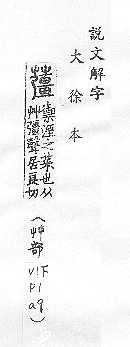 說文解字
大徐本
䕬
禦溼之菜也从
艸彊聲居良切
(艸部
V1F
P1
a9)